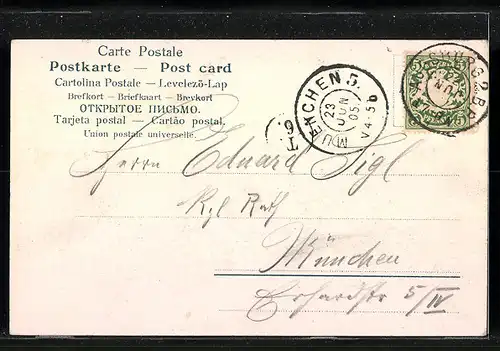 Carte Postale
Postkarte — Post card
Cartolina Postale — Levelező-Lap
Brefkort — Briefkaart — Brevkort
ОТКРЫТОЕ ПИСЬМО.
Tarjeta postal — Cartão postal.
Union postale universelle.
MUENCHEN 5.
23
JUN
05
V4-5b
T 6
22
JUN
5
Herrn Eduard Sigl
Kgl Rath
München
Erhardtstr 5/IV